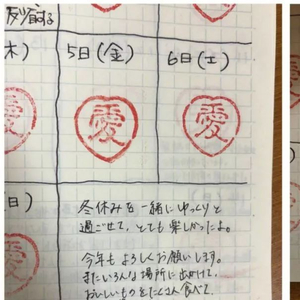 反省する
木)
5日(金)
6日(土)
愛
愛
日)
冬休みを一緒にゆっくりと
過ごせて、とても楽しかったよ。
今年もよろしくお願いします。
またいろんな場所に出かけて、
おいしいものをたくさん食べて、